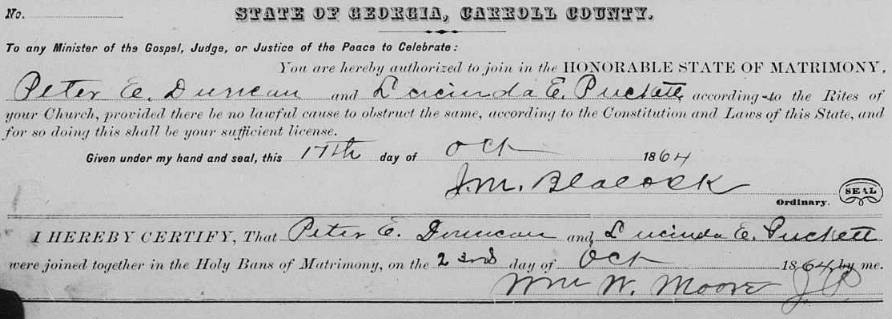 No.
STATE OF GEORGIA, CARROLL COUNTY.
To any Minister of the Gospel, Judge, or Justice of the Peace to Celebrate:
You are hereby authorized to join in the HONORABLE STATE OF MATRIMONY,
Peter E. Duncan and Lucinda E. Puckett according to the Rites of
your Church, provided there be no lawful cause to obstruct the same, according to the Constitution and Laws of this State, and
for so doing this shall be your sufficient license.
Given under my hand and seal, this 17th day of Oct 1864
J.M. Blalock SEAL
Ordinary.
I HEREBY CERTIFY, That Peter E. Duncan and Lucinda E. Puckett
were joined together in the Holy Bans of Matrimony, on the 23rd day of Oct 1864 by me.
Wm W. Moore J.P.